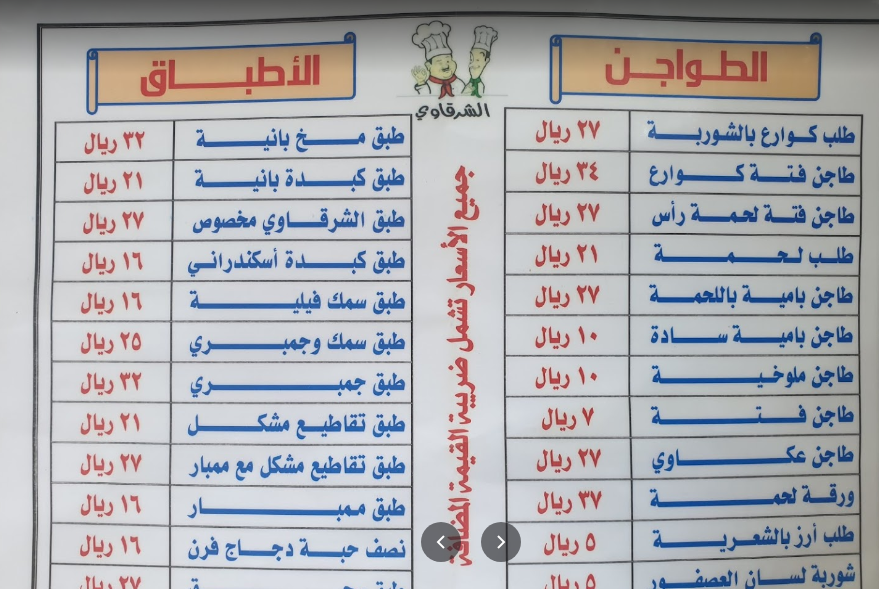 الطواجن
طلب كوارع بالشوربة ٢٧ ريال
طاجن فتة كوارع ٣٤ ريال
طاجن فتة لحمة رأس ٢٧ ريال
طلب لحمة ٢١ ريال
طاجن بامية باللحمة ٢٧ ريال
طاجن بامية سادة ١٠ ريال
طاجن ملوخية ١٠ ريال
طاجن فتة ٧ ريال
طاجن عكاوي ٢٧ ريال
ورقة لحمة ٣٧ ريال
طلب أرز بالشعرية ٥ ريال
شوربة لسان العصفور ٥ ريال
الشرقاوي
جميع الأسعار تشمل ضريبة القيمة المضافة
الأطباق
طبق مخ بانية ٣٢ ريال
طبق كبدة بانية ٢١ ريال
طبق الشرقاوي مخصوص ٢٧ ريال
طبق كبدة أسكندراني ١٦ ريال
طبق سمك فيلية ١٦ ريال
طبق سمك وجمبري ٢٥ ريال
طبق جمبري ٣٢ ريال
طبق تقاطيع مشكل ٢١ ريال
طبق تقاطيع مشكل مع ممبار ٢٧ ريال
طبق ممبار ١٦ ريال
نصف حبة دجاج فرن ١٦ ريال
٢٧ ريال